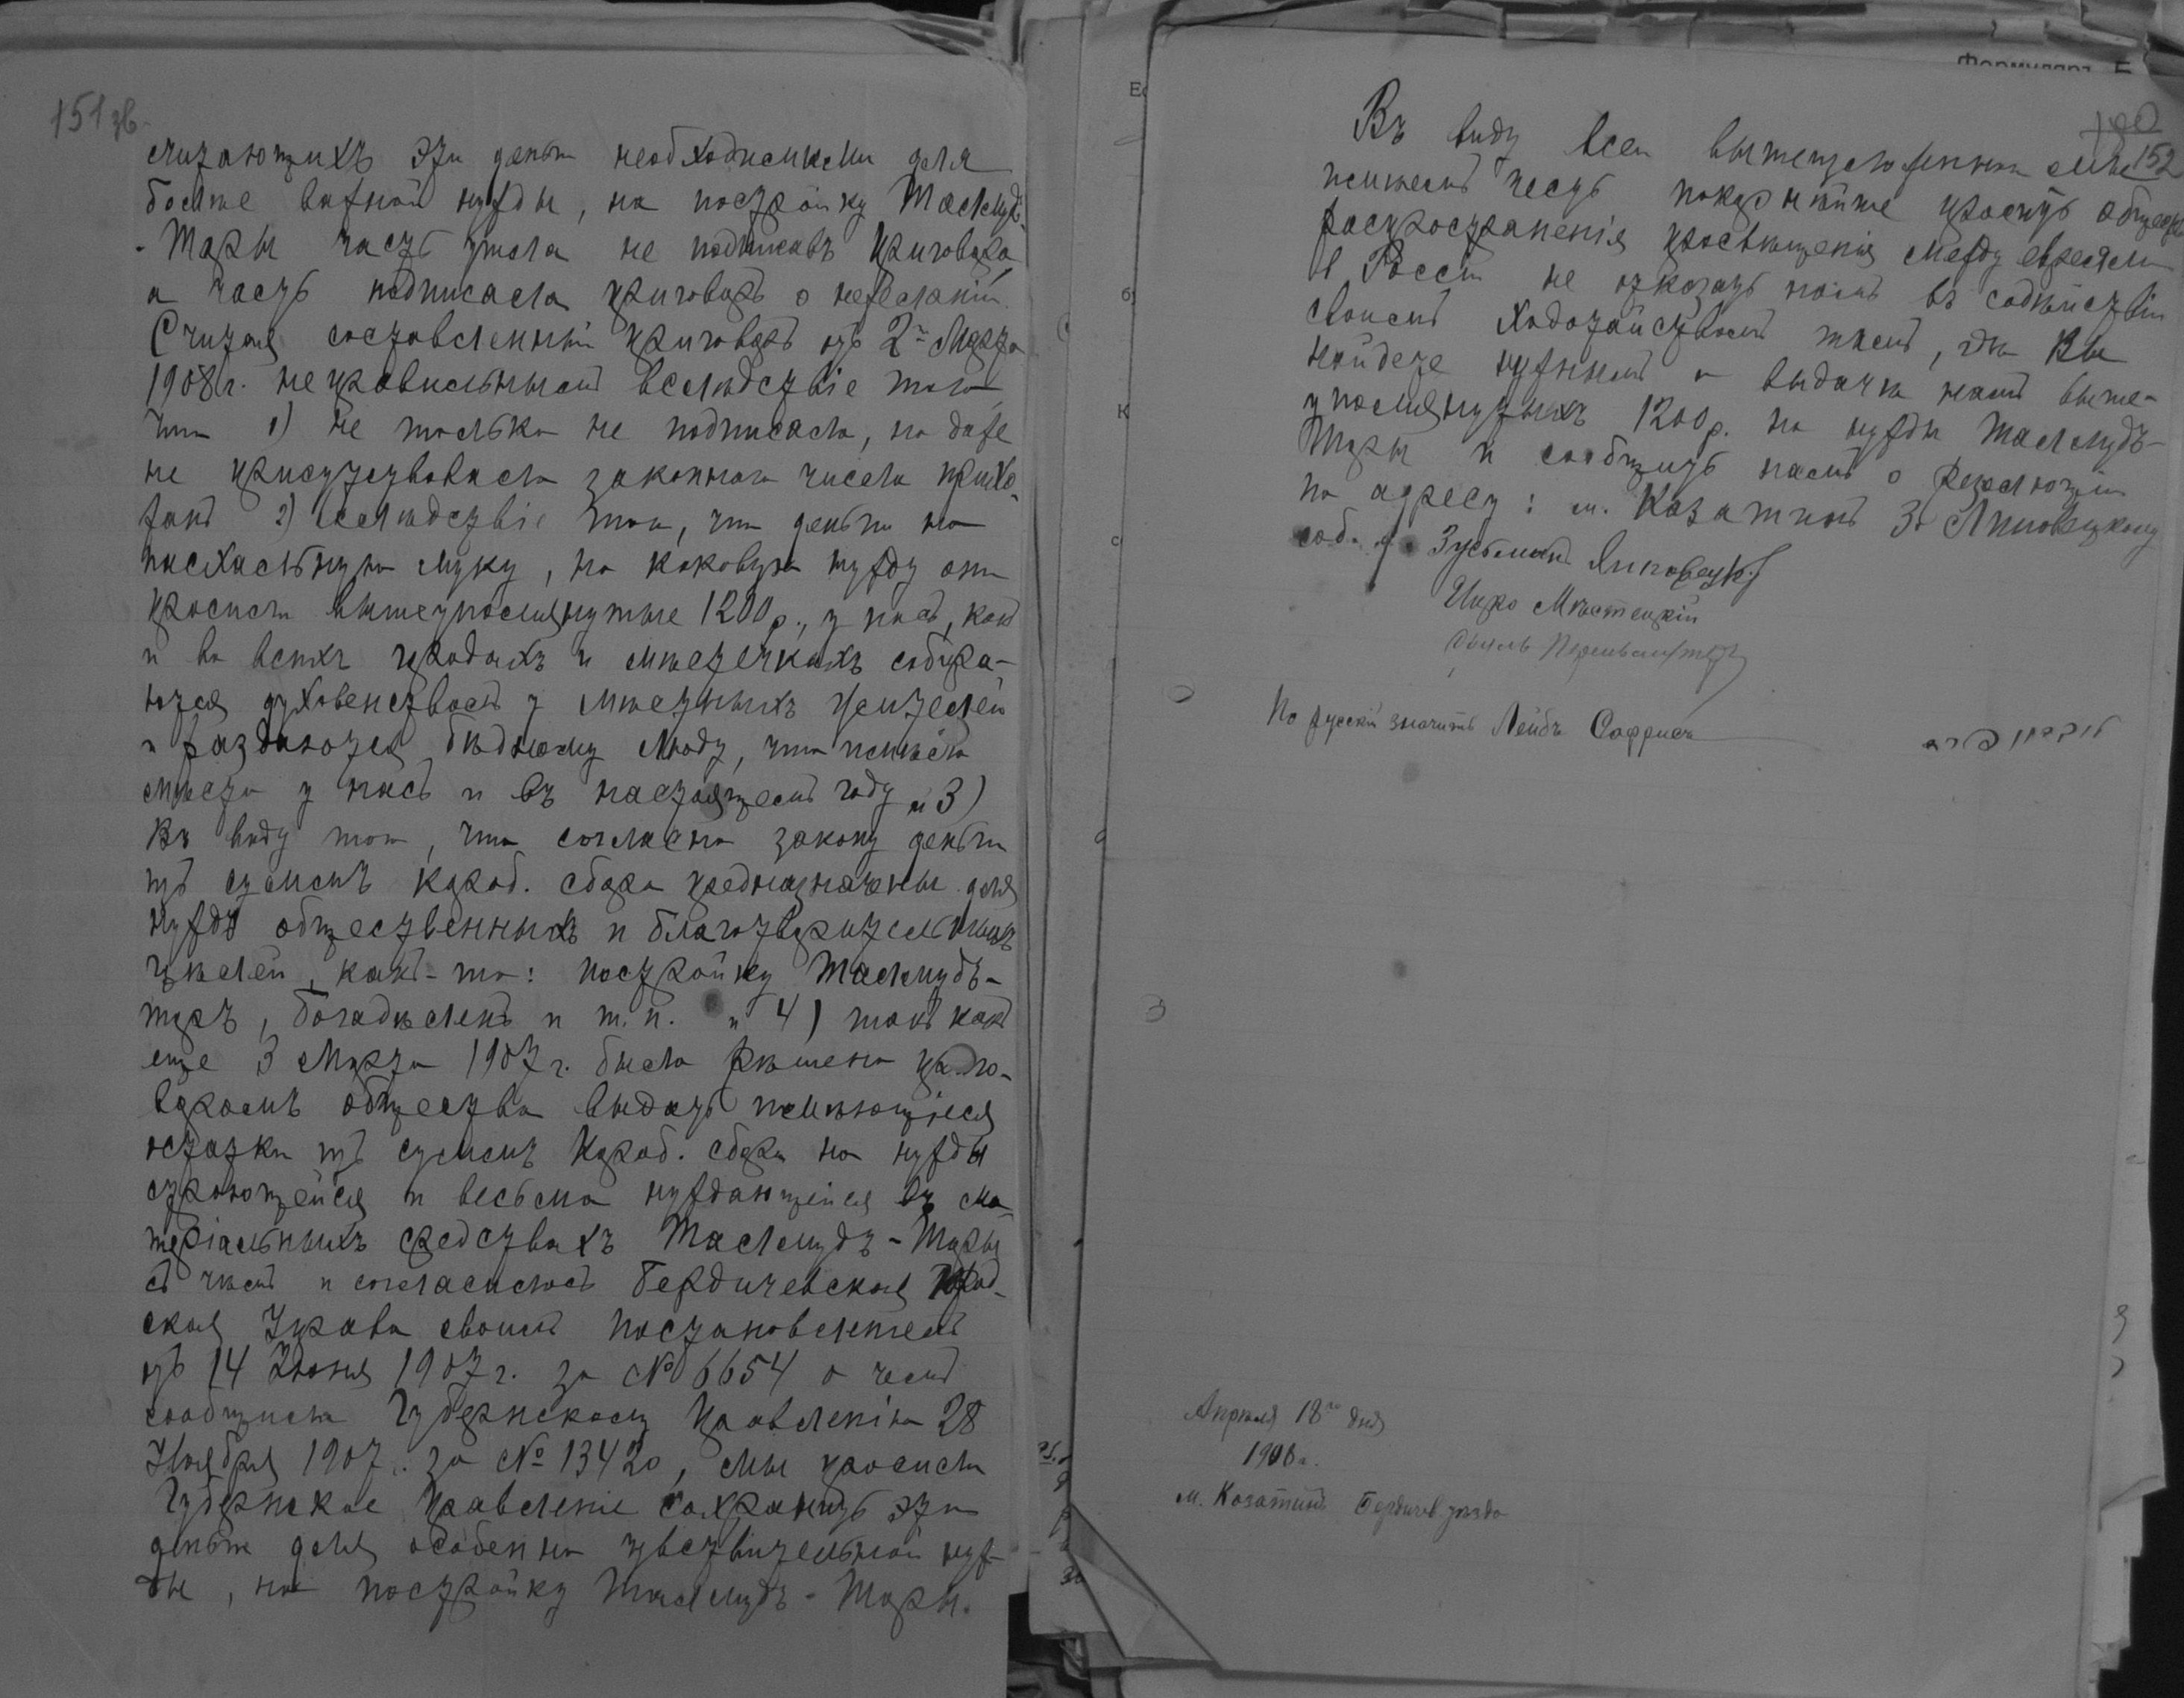 151 зв.
считающихъ эти деньги необходимыми для
более важной нужды, на постройку Талмудъ-
-Торы часть ушла не подписавъ приговора,
а часть подписала приговоръ о нежеланіи.
Считая составленный приговоръ отъ 2го Марта
1908 г. неправильнымъ вслѣдствіе того
что 1) не только не подписало, но даже
не присутствовало законного числа прихо-
жанъ 2) вслѣдствіе того, что деньги на
пасхальную муку, на каковую нужду они
просили вышеупомянутые 1200 р., у насъ, какъ
и во всѣхъ городахъ и мѣстечкахъ собира-
ются духовенствомъ у мѣстныхъ жителей
и раздаются бѣдному люду, что имѣло
мѣсто у насъ и въ настоящемъ году и 3)
въ виду того, что согласно закону деньги
изъ суммъ короб. сбора предназначены для
нуждъ общественныхъ и благотворительныхъ
цѣлей, какъ-то: постройку Талмудъ-
торъ, богадѣленъ и т.п. и 4) такъ какъ
еще 3 Марта 1907 г. было рѣшено приго-
воромъ общества выдать имѣющіеся
остатки изъ суммъ короб. сбора на нужды
строющейся и весьма нуждающейся въ ма-
теріальныхъ средствахъ Талмудъ-Торы
съ чѣмъ и согласилась Бердичевская Город-
ская Управа своимъ постановленіемъ
отъ 14 Іюня 1907 г. за № 6654 о чемъ
сообщила Губернскому Правленію 28
Ноября 1907 г. за № 13420, мы просили
Губернское Правленіе сохранить эти
деньги для особенно чувствительной нуж-
ды, на постройку Талмудъ-Торы.
Формуляръ Б
152
Въ виду всего вышеизложенного мы
имѣемъ честь покорнѣйше просить общество
распространенія просвѣщенія между евреями
въ Россіи не отказать намъ въ содѣйствіи
своимъ ходотайствомъ тамъ, гдѣ Вы
найдете нужнымъ о выдачи намъ выше-
упомянутыхъ 1200 р. на нужды Талмудъ-
Торы и сообщить намъ о резолюціи
по адресу: м. Казатинъ З. Липовецкому
соб. д. Зусьманъ Липовецкій
Ицко Мѣстецкій
По русски значитъ Лейбъ Соффисъ
Апрѣля 18го дня
1908 г.
м. Козатинъ Бердичев. уѣзда